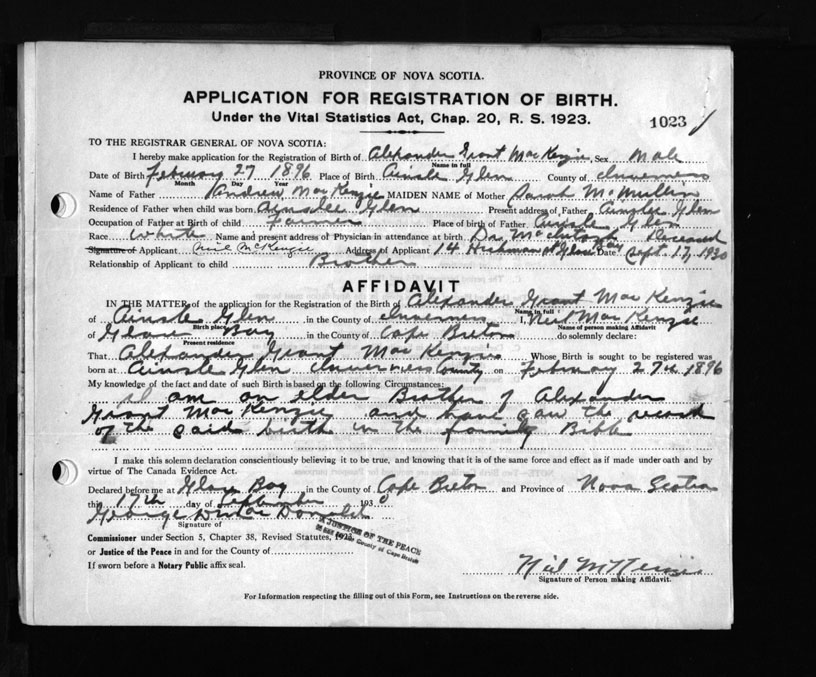 PROVINCE OF NOVA SCOTIA.
APPLICATION FOR REGISTRATION OF BIRTH.
Under the Vital Statistics Act, Chap. 20, R. S. 1923.
1023
TO THE REGISTRAR GENERAL OF NOVA SCOTIA:
I hereby make application for the Registration of Birth of Alexander Grant MacKenzie Sex Male
Name in full
Date of Birth February 27 1896 Place of Birth Ainslie Glen County of Inverness
Month Day Year
Name of Father Andrew MacKenzie MAIDEN NAME of Mother Sarah McMillan
Residence of Father when child was born Ainslie Glen Present address of Father Ainslie Glen
Occupation of Father at Birth of child Farmer Place of birth of Father Ainslie Glen
Race White Name and present address of Physician in attendance at birth Dr. McIntosh Deceased
Signature of Applicant Neil McKenzie Address of Applicant 14 St Glace Bay Date Sept. 17, 1930
Relationship of Applicant to child Brother
AFFIDAVIT
IN THE MATTER of the application for the Registration of the Birth of Alexander Grant MacKenzie
Name in full
of Ainslie Glen in the County of Inverness I, Neil MacKenzie
Birth place Name of person making Affidavit
of Glace Bay in the County of Cape Breton do solemnly declare:
Present residence
That Alexander Grant MacKenzie Whose Birth is sought to be registered was
born at Ainslie Glen Inverness County on February 27th 1896
My knowledge of the fact and date of such Birth is based on the following Circumstances:
I am an elder Brother of Alexander
Grant MacKenzie and have saw the record
of the said birth in the family Bible
I make this solemn declaration conscientiously believing it to be true, and knowing that it is of the same force and effect as if made under oath and by
virtue of The Canada Evidence Act.
Declared before me at Glace Bay in the County of Cape Breton and Province of Nova Scotia
this 17th day of September 1930
George MacDonald
Signature of
Commissioner under Section 5, Chapter 38, Revised Statutes, 1923
or Justice of the Peace in and for the County of
If sworn before a Notary Public affix seal.
A JUSTICE OF THE PEACE
in and for the County of Cape Breton
Neil McKenzie
Signature of Person making Affidavit.
For Information respecting the filling out of this Form, see Instructions on the reverse side.